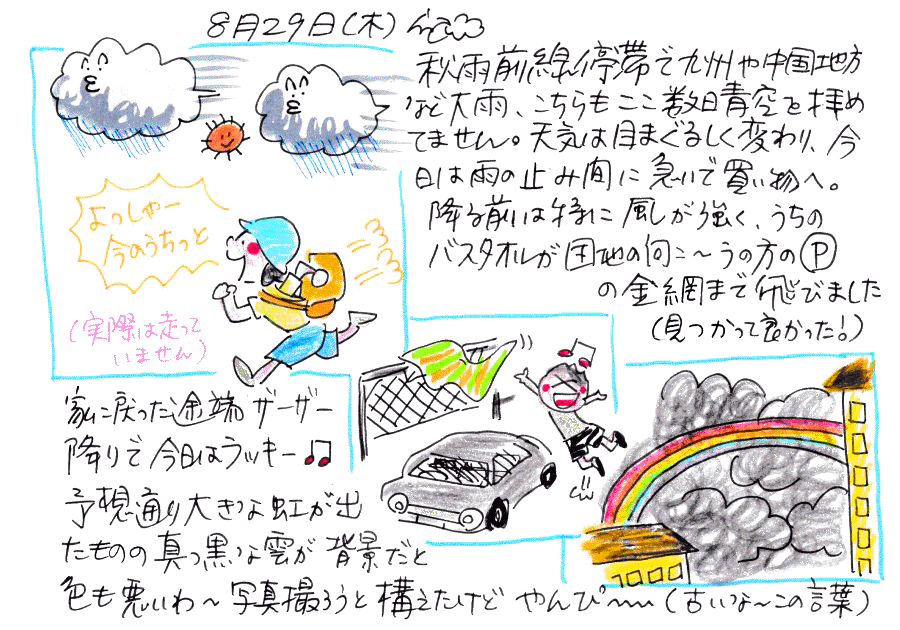 8月29日(木)
秋雨前線停帯で九州や中国地方
など大雨、こちらもここ数日青空を拝め
てません。天気は目まぐるしく変わり、今
日は雨の止み間に急いで買い物へ。
降る前は特に風が強く、うちの
バスタオルが団地の向こ〜うの方のⓅ
の金網まで飛びました
(見つかって良かった!)
よっしゃー
今のうちっと
(実際は走って
いません)
家に戻った途端ザーザー
降りで今日はラッキー♫
予想通り大きな虹が出
たものの真っ黒な雲が背景だと
色も悪いわ〜写真撮ろうと構えたけどやんぴ〜(古いな〜この言葉)